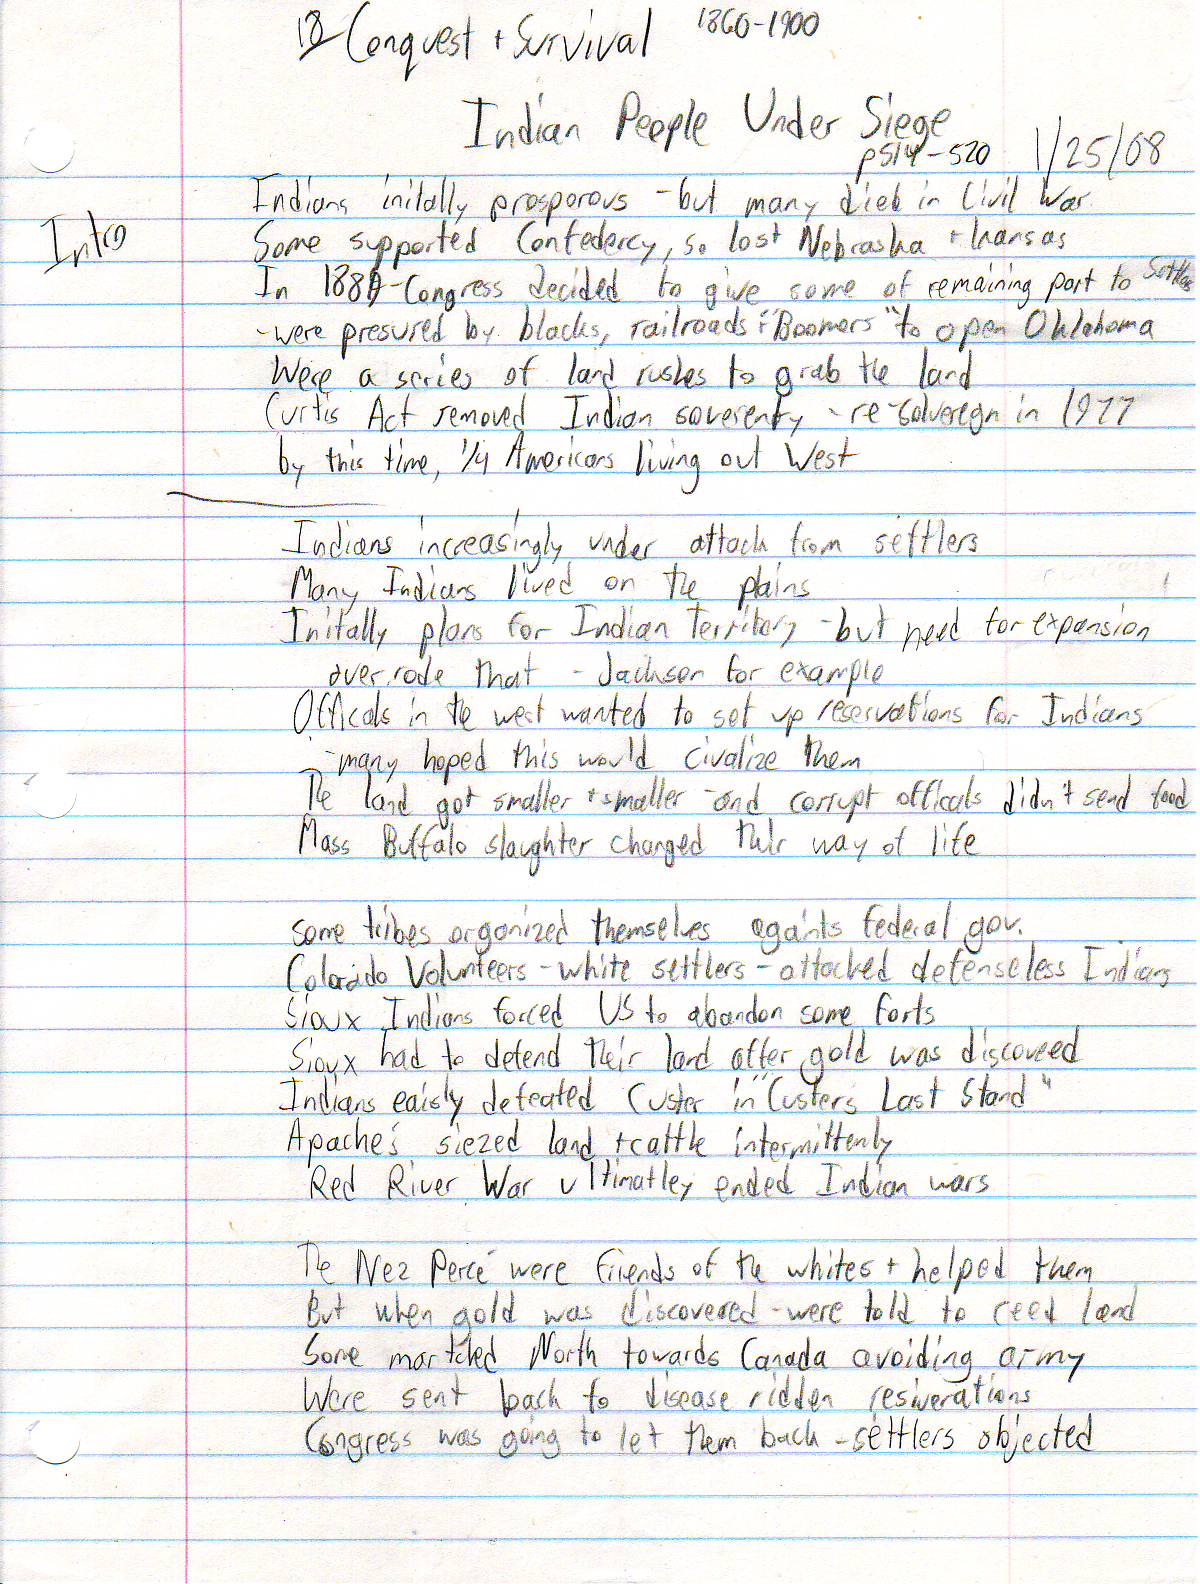 18 Conquest + Survival 1860-1900
Indian People Under Siege
p514-520 1/25/08
Intro
Indians initally prosporous - but many died in Civil War
Some supported Confedercy, so lost Nebraska + Kansas
In 1889-Congress decided to give some of remaining part to Settlers
-were presured by blacks, railroads + "Boomers" to open Oklahoma
Were a series of land rushes to grab the land
Curtis Act removed Indian soverenty - re-solveregn in 1977
by this time, 1/4 Americans living out West
Indians increasingly under attack from settlers
Many Indians lived on the plains
Initally plans for Indian Territory - but need for expansion
over rode that - Jackson for example
Officals in the west wanted to set up reservations for Indians
-many hoped this would civalize them
The land got smaller + smaller - and corrupt officals didn't send food
Mass Buffalo slaughter changed their way of life
some tribes organized themselves againts federal gov.
Colorado Volunteers - white settlers - attacked defenseless Indians
Sioux Indians forced US to abandon some forts
Sioux had to defend their land after gold was discoveed
Indians eaisly defeated Custer in "Custers Last Stand"
Apache's siezed land + cattle intermittenly
Red River War ultimatley ended Indian wars
The Nez Percé were friends of the whites + helped them
But when gold was discovered - were told to ceed land
Some martched North towards Canada avoiding army
Were sent back to disease ridden resiverations
Congress was going to let them back - settlers objected